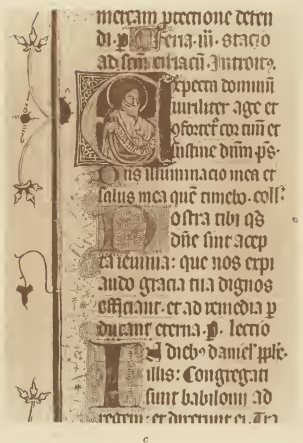 meream ptectione defen
di. p. Feria. iii. stacio
ad scm ciriacu. Introit9.
Expecta dominu
uiriliter age et
9fortet' cor tuu et
sustine dnm ps.
Dns illuminacio mea et
salus mea que timebo. coll'
Nostra tibi qs
dne sint acep
ta ieiunia: que nos expi
ando gracia tua dignos
efficiant. et ad remedia p
ducant eterna. p. lectio
In dieb9 daniel pphe.
illis: Congregati
sunt babilonij ad
regem: et dixerunt ei. Tra
c